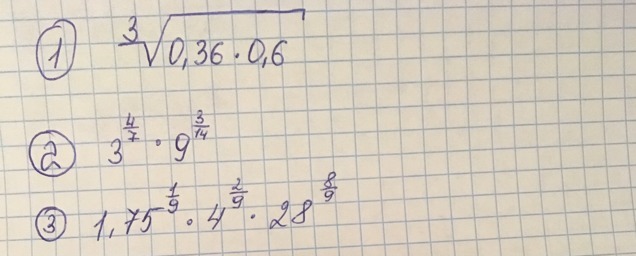 ① ∛(0,36 · 0,6)
② 3^(4/7) · 9^(3/14)
③ 1,75^(1/9) · 4^(2/9) · 28^(8/9)